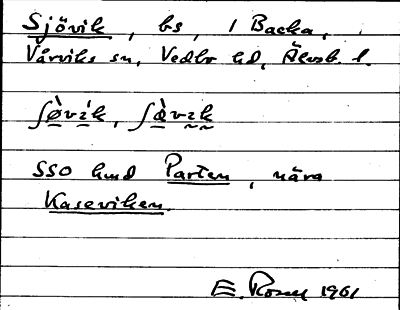 Sjövik, bs, 1 Backa,
Vårviks sn, Vedbo hd, Älvsb. l.
ʃø̀vík, ʃæ̀vɪk
SSO hmd Parten, nära
Kaseviken.
E. 1961